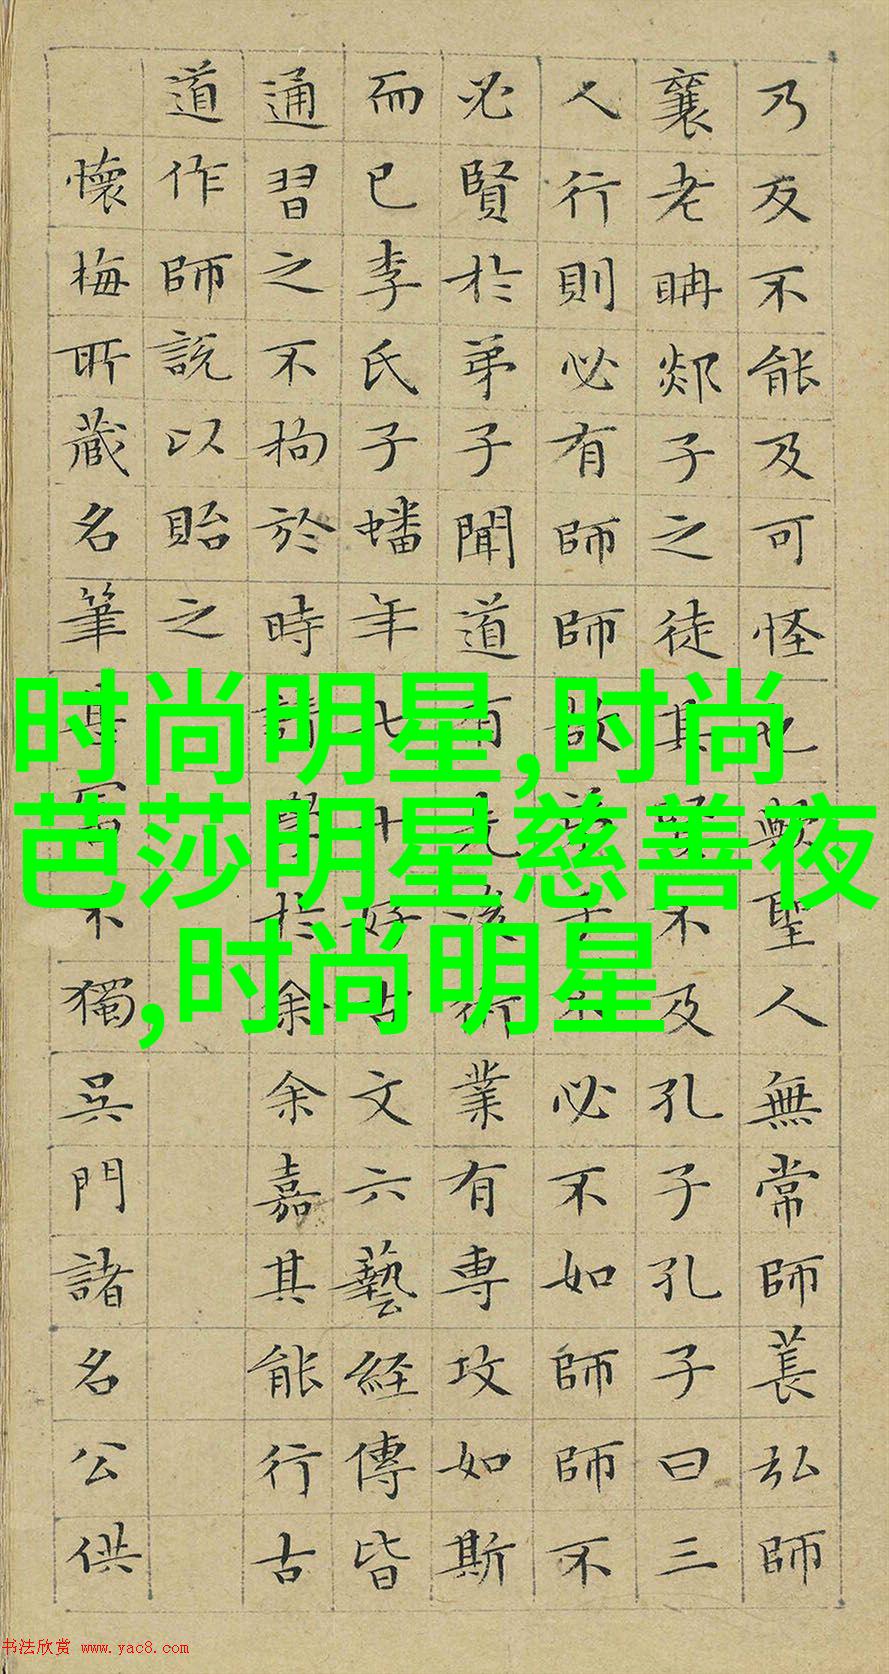 乃反不能及可怪也歟聖人無常師萇弘師
襄老聃郯子之徒其賢不及孔子孔子曰三
人行則必有師師故弟子不必不如師師不
必賢於弟子聞道有先後術業有專攻如斯
而已李氏子蟠年七十好古文六藝経傳皆
通習之不拘於時請學於余余嘉其能行古
道作師說以貽之
懷梅所藏名筆甚富不獨吳門諸名公供
时尚明星,时尚
芭莎明星慈善夜
,时尚明星
书法欣赏 www.yac8.com